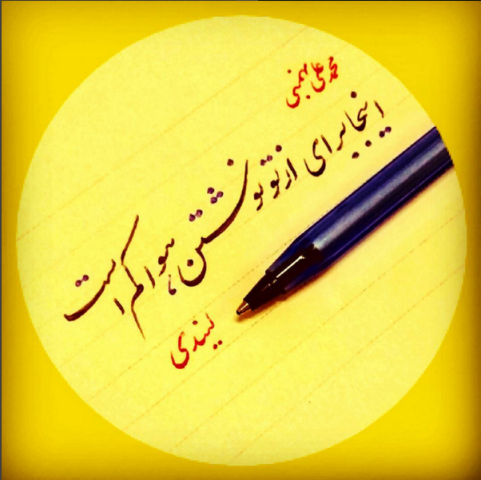 محمد علی بهمنی
اینجا برای از تو نوشتن، هوا کم است
لیندی